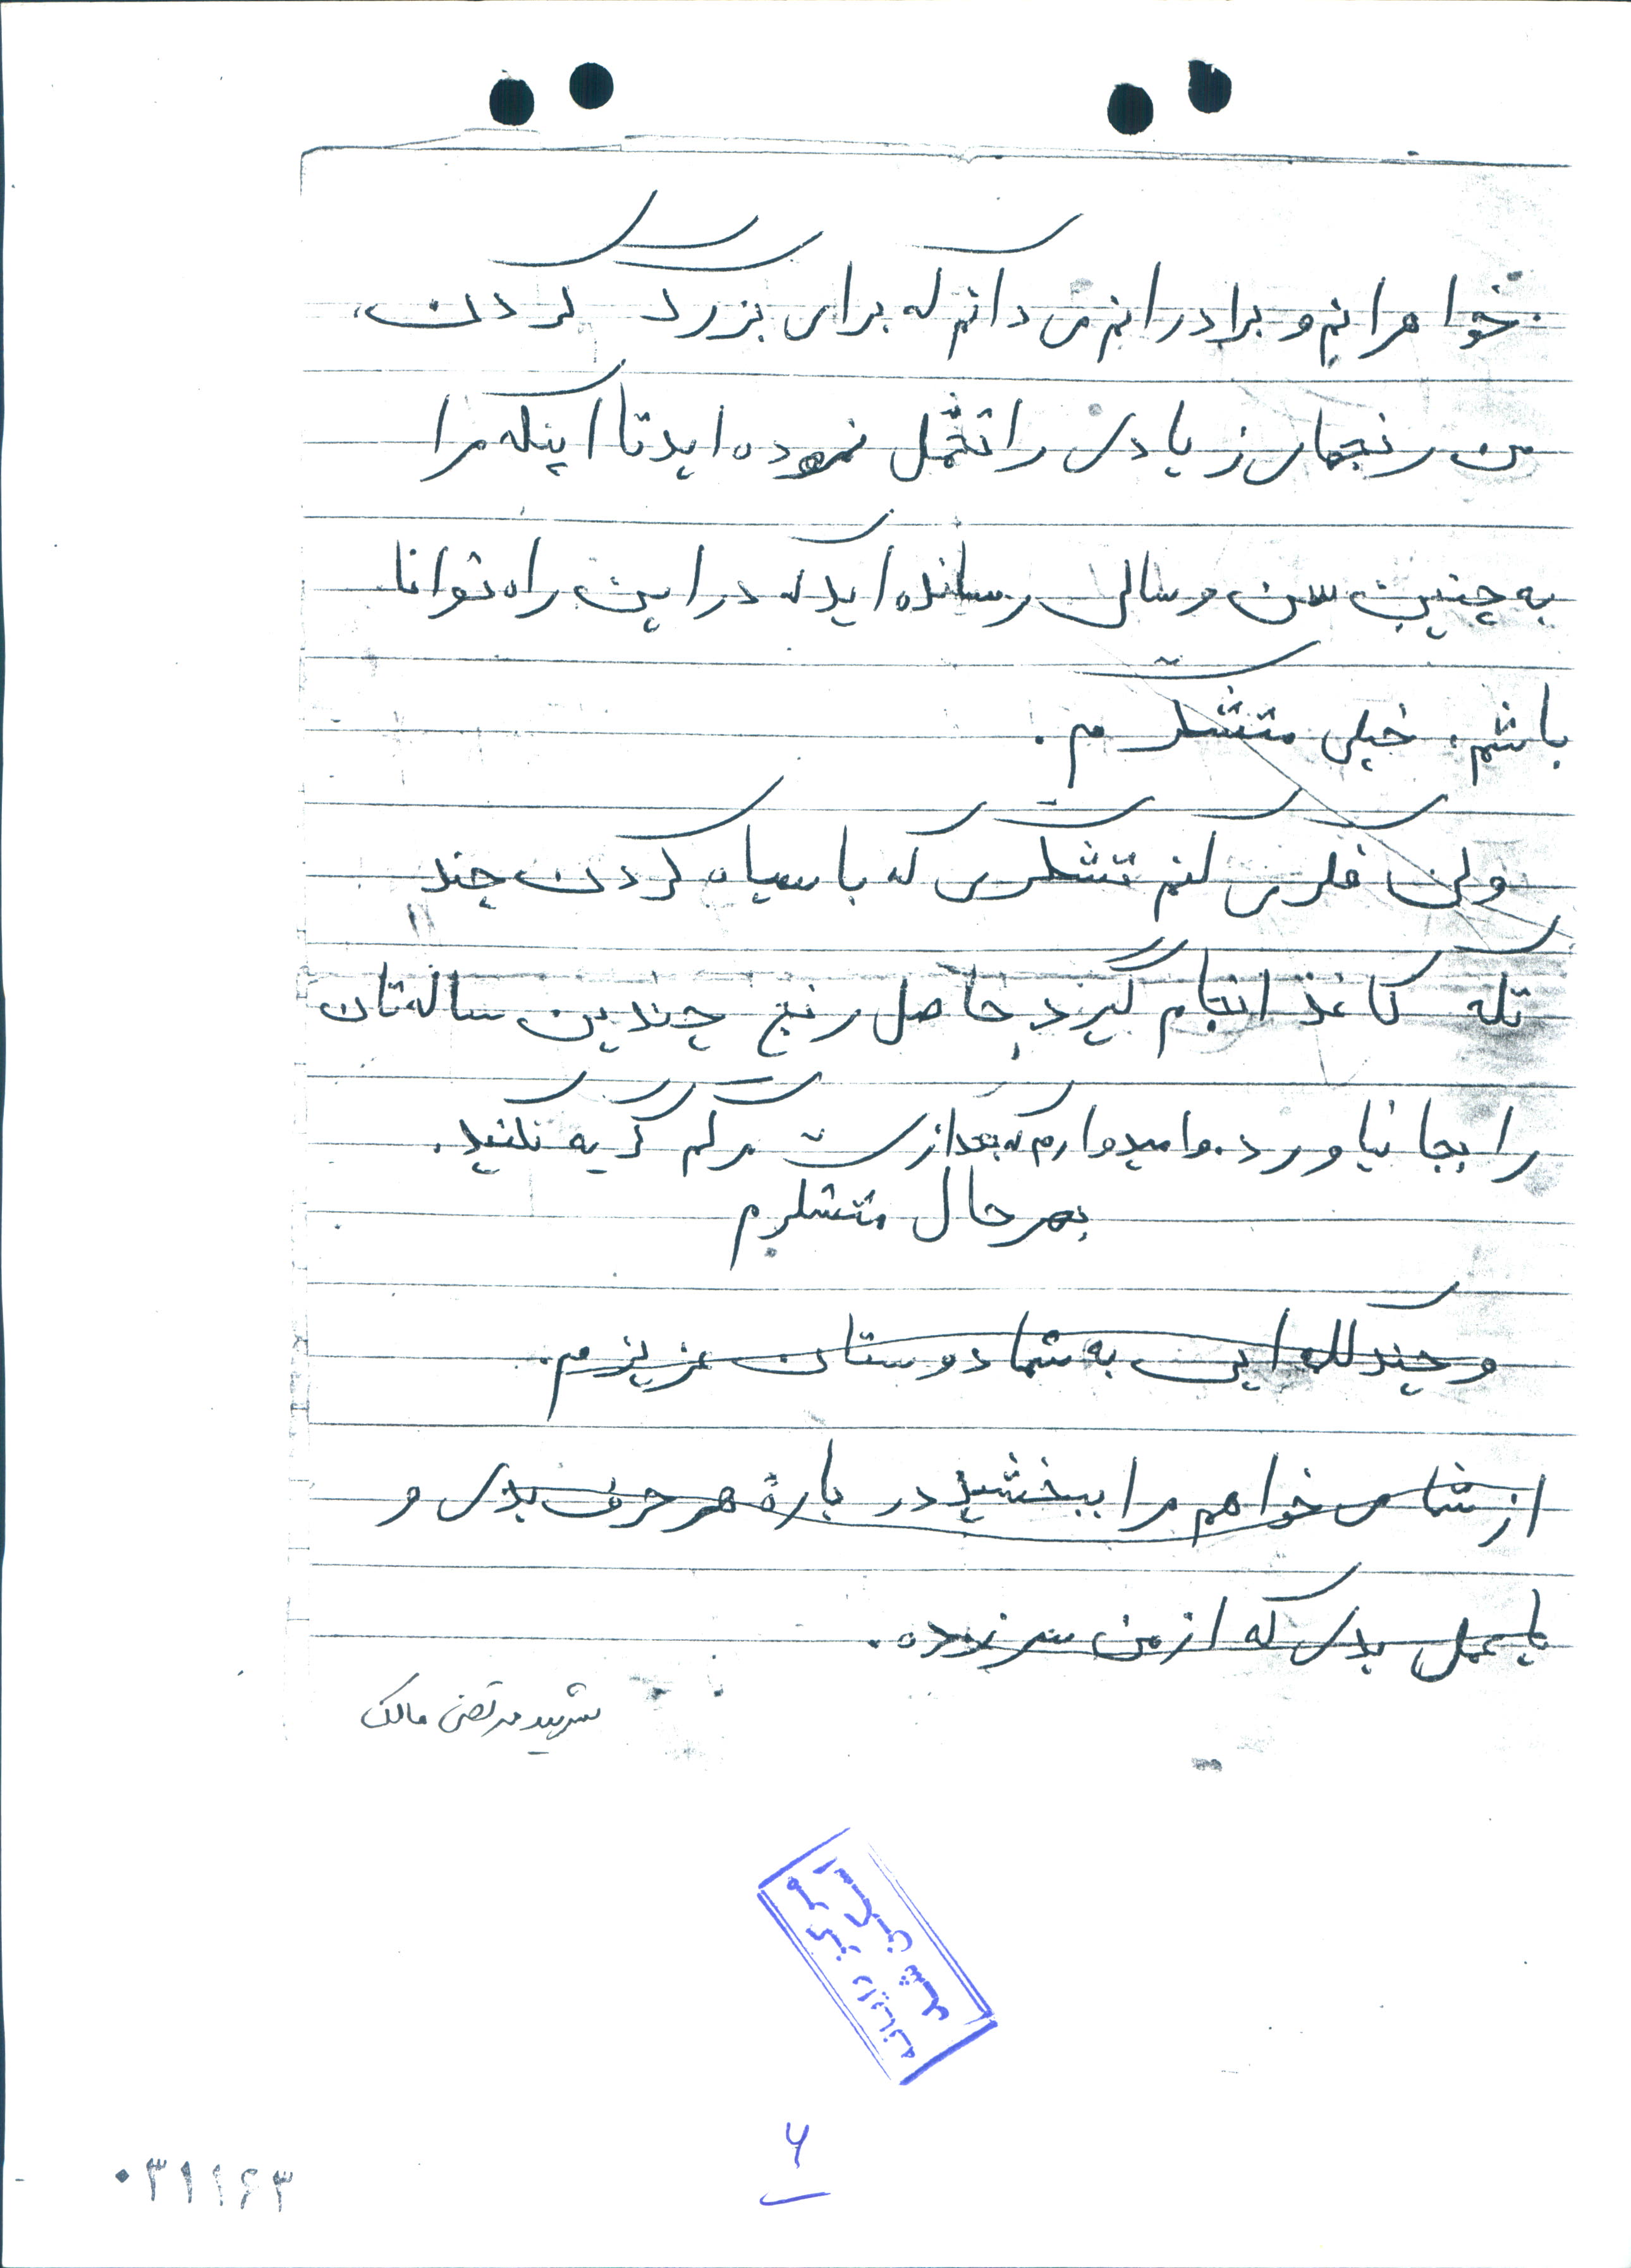 خواهرانم و برادرانم می دانم که برای بزرگ کردن،
من رنجهای زیادی را تحمل نموده اید تا اینکه مرا
به چنین سن و سالی رسانده اید که در این راه توانا
باشم. خیلی متشکرم.
ولی فکر می کنم تشکری که با سیاه کردن چند
تکه کاغذ انجام گیرد حاصل رنج چندین ساله تان
را بجا نیاورد. و امیدوارم که بعد از مرگم گریه نکنید.
بهر حال متشکرم
و چند کلمه ایی به شما دوستان عزیزم.
از شما می خواهم مرا ببخشید در بارهٔ هر حرف بدی و
یا عمل بدی که از من سر زده.
شهید مرتضی مالکی
مرکز رایانه
اسکن شد
۶
۰۳۱۱۶۳